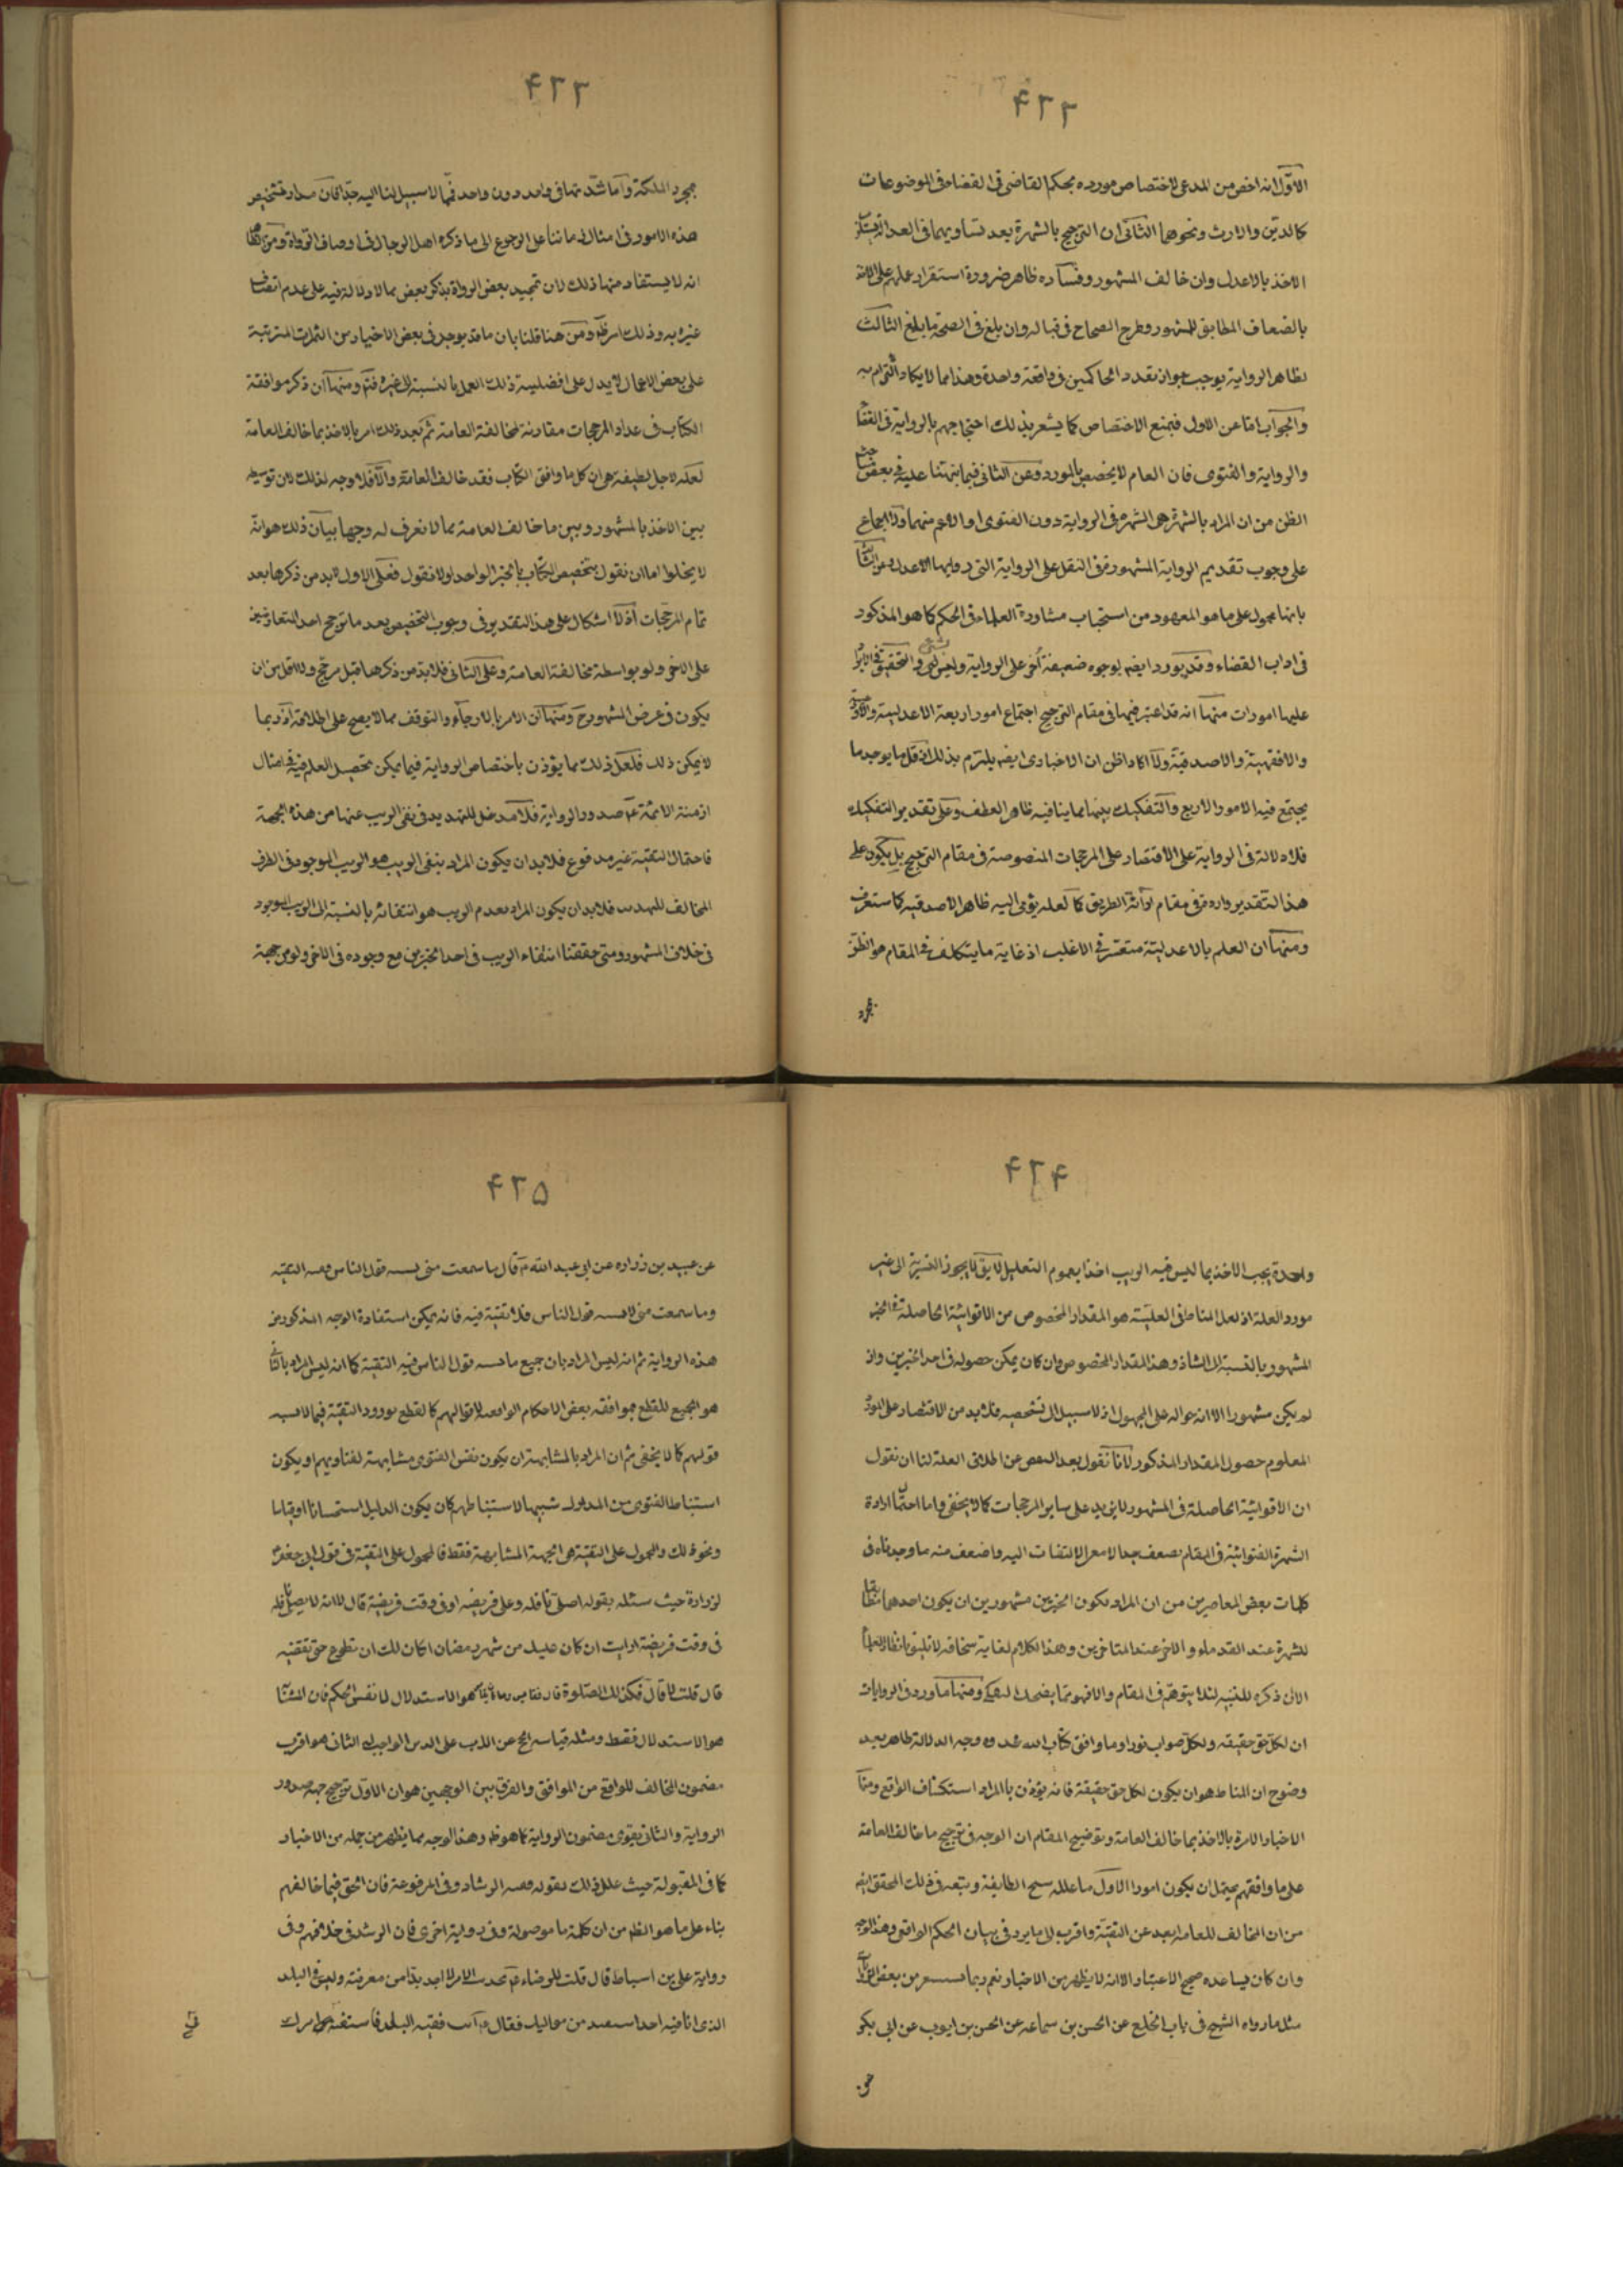 ۴۲۲
الاوّل انه اخص من المدعى لاختصاص مورده بحكم القاضى فى القضاء فى الموضوعات
كالدين والارث ونحوهما الثانى ان الترجيح بالشهرة بعد تساويهما فى العدالة
الاخذ بالاعدل وان خالف المشهور وفساده ظاهر ضرورة استقرار عملهم على الاخذ
بالضعاف المطابق للمشهور وطرح الصحاح فى قباله وان بلغ فى الصحة ما بلغ الثالث
ظاهر الرواية يوجب جواز تعدد الحاكمين فى واقعة واحدة وهذا مما لا يكاد التزام به
والجواب اما عن الاول فبمنع الاختصاص كما يشعر بذلك احتجاجهم بالرواية فى القضا
والرواية والفتوى فان العام لا يخصص بالمورد وعن الثانى فبما نبهنا عليه فى بعض
الظن من ان المراد بالشهرة هى الشهرة فى الرواية دون الفتوى او الاعم منهما والاجماع
على وجوب تقديم الرواية المشهورة فى النقل على الرواية التى رواها الاعدل وعن الثالث
بانها محمول على ما هو المعهود من استحباب مشاورة العلماء فى الحكم كما هو المذكور
فى اداب القضاء وقد يورد ايضا بوجوه ضعيفة أخر على الرواية وليس بشىء والتحقيق
عليها امورات منها انه قد اعتبر فيها فى مقام الترجيح اجتماع امور اربعة الاعدلية
والافقهية والاصدقية ولا اكاد اظن ان الاخبارى ايضا يلتزم بذلك اذ قل ما يوجد ما
يجتمع فيه الامور الاربع والتفكيك بينها مما ينافيه ظاهر العطف وعلى تقدير التفكيك
فلا دلالة فى الرواية على الاقتصار على المرجحات المنصوصة فى مقام الترجيح بل يكون على
هذا التقدير واردة فى مقام ارائة الطريق كما لعله يؤمى اليه ظاهر الاصدقية كما ستعرف
ومنها ان العلم بالاعدلية متعسر فى الاغلب اذ غاية ما يتكلف فى المقام هو الظن
بمجرد
۴۲۳
بمجرد الملكة واما شدتها فى واحد دون واحد فمما لا سبيل لنا اليه جدا فان مدار تشخيص
هذه الامور فى امثال زماننا على الرجوع الى ما ذكره اهل الرجال فى اوصاف الرواة ومن
انه لا يستفاد منها ذلك لان تمجيد بعض الرواة بذكر بعض مما لا دلالة فيه على عدم اتصاف
غيره به وذلك امر ظ ومن هنا قلنا بان ما قد يوجد فى بعض الاخبار من الثمرات المترتبة
على بعض الاعمال لا يدل على افضلية ذلك العمل بالنسبة الى غيره فتم ومنها ان ذكر موافقة
الكتاب فى عداد المرجحات مقارنة لمخالفة العامة ثم بعد ذلك امر بالاخذ بما خالف العامة
لعله لاجل لطيفة هى ان كل ما وافق الكتاب فقد خالف العامة والا فلا وجه لذلك لان توسيطه
بين الاخذ بالمشهور وبين ما خالف العامة مما لا نعرف له وجها بيان ذلك هو انه
لا يخلوا اما ان نقول بتخصيص الكتاب بالخبر الواحد او لا نقول فعلى الاول لا بد من ذكرها بعد
تمام المرجحات اذ لا اشكال على هذا التقدير فى وجوب التخصيص بعد ما ترجح احد المتعارضين
على الاخر ولو بواسطة مخالفة العامة وعلى الثانى فلا بد من ذكرها قبل مرجح ولا اقل من ان
يكون فى عرض المشهور ح ومنها ان الامر بالارجاء والتوقف مما لا يصح على اطلاقه اذ ربما
لا يمكن ذلك فلعل ذلك مما يؤذن باختصاص الرواية فيما يمكن تحصيل العلم فيه فى امثال
ازمنة الائمة ع صدور الرواية فلا مدخل للتهديد فى نفى الريب عنها من هذه الجهة
فاحتمال التقية غير مدفوع فلا بد ان يكون المراد بنفى الريب هو الريب الموجود فى الطرف
المخالف فلا بد ان يكون المراد بعدم الريب هو انتفائه بالنسبة الى الريب الموجود
فى خلاف المشهور ومتى حققنا انتفاء الريب فى احد الخبرين مع وجوده فى الاخر ولو من جهة
۴۲۴
واحدة يجب الاخذ بما ليس فيه الريب اخذا بعموم التعليل لا يق لا يجوز التسرية الى غير
مورد العلة اذ لعل المناط فى العلية هو المقدار المخصوص من الاقوائية الحاصلة فى الخبر
المشهور بالنسبة الى الشاذ وهذا المقدار المخصوص وان كان يمكن حصوله فى احد الخبرين واذ
لم يكن مشهورا الا انه حوالة على المجهول اذ لا سبيل الى تشخيصه فلا بد من الاقتصار على المورد
المعلوم حصول المقدار المذكور لانا نقول بعد الغض عن اطلاق العلة لنا ان نقول
ان الاقوائية الحاصلة فى المشهور لا يزيد على ساير المرجحات كما لا يخفى واما احتمال ارادة
الشهرة الفتوائية فى المقام يضعف جدا لا معر الالتفات اليه واضعف منه ما وجدناه فى
كلمات بعض المعاصرين من ان المراد بكون الخبرين مشهورين ان يكون احدهما مطابقا
للشهرة عند القدماء والاخر عند المتاخرين وهذا الكلام لغاية سخافة لا تليق بانظار العلما
الا ان ذكره للتنبيه لئلا يتوهم فى المقام والا فهو مما يضحك الثكلى ومنها ما ورد فى الروايات
ان لكل حق حقيقة ولكل صواب نورا وما وافق كتاب الله فخذوه وجه الدلالة ظاهر بعد
وضوح ان المناط هو ان يكون لكل حق حقيقة فانه يؤذن بالمراد استكشاف الواقع ومنها
الاخبار الامرة بالاخذ بما خالف العامة وتوضيح المقام ان الوجه فى ترجيح ما خالف العامة
على ما وافقهم يحتمل ان يكون امورا الاول ما علله شيخ الطايفة وتبعه فى ذلك المحقق ايضا
من ان المخالف للعامة ابعد عن التقية واقرب الى ما يرد فى بيان الحكم الواقعى وهذا الوجه
وان كان يساعده صحيح الاعتبار الا انه لا يظهر من الاخبار نعم ربما يستشعر من بعض الروايات
مثل ما رواه الشيخ فى باب الخلع عن الحسن بن سماعه عن الحسن بن ايوب عن ابى بكر
عن
۴۲۵
عن عبيد بن زرارة عن ابى عبد الله ع قال ما سمعت منى يشبه قول الناس فيه التقية
وما سمعت منى لا يشبه قول الناس فلا تقية فيه فانه يمكن استفادة الوجه المذكور من
هذه الرواية ثم انه ليس المراد بان جميع ما يشبه قول الناس فيه التقية كما انه ليس المراد بالناس
هو الجميع للقطع بموافقة بعض الاحكام الواقعية لاقوالهم كالقطع بورود التقية فيما لا يشبه
قولهم كما لا يخفى ثم ان المراد بالمشابهة ان يكون نفس الفتوى مشابهة لفتاويهم او يكون
استنباط الفتوى من المدلول شبيها لاستنباطهم كان يكون الدليل استحسانا او قياسا
ونحو ذلك والمحمول على التقية هى الجهة المشابهة فقط فالمحمول على التقية فى قول ابى جعفر
لزرارة حيث سئله بقوله اصلى نافلة وعلى فريضة او فى وقت فريضة قال لا انه لا يصلى نافلة
فى وقت فريضة ارايت ان كان عليك من شهر رمضان اكان لك ان تطوع حتى تقضيه
قال قلت لا قال فكذلك الصلوة قال هو الاستدلال لا نفس الحكم فان
هو الاستدلال فقط ومثله قياسه الحج عن الاب على الدين الواجب الثانى هو اقرب
مضمون المخالف للواقع من الموافق والفرق بين الوجهين هو ان الاول ترجيح جهة صدور
الرواية والثانى يقوى مضمون الرواية كما هو ظ وهذا الوجه مما يظهر من جملة من الاخبار
كما فى المقبولة حيث علل ذلك بقوله ففيه الرشاد وفى المرفوعة فان الحق فيما خالفهم
بناء على ما هو الظ من ان كلمة ما موصولة وفى رواية اخرى فان الرشد فى خلافهم وفى
رواية على بن اسباط قال قلت للرضاء ع يحدث الامر لا اجد بدا من معرفته وليس فى البلد
الذى انا فيه احد استفتيه من مواليك فقال ع ائت فقيه البلد فاستفته فى امرك